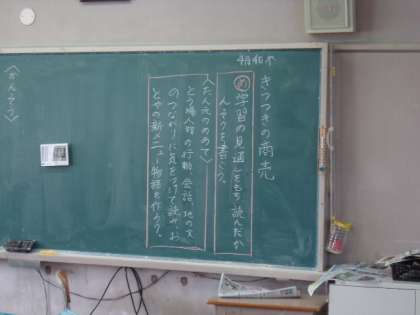 4月10日木
きつつきの商売
め 学習の見通しをもち読んだか
んそうを書こう。
〈たん元のめあて〉
とう場人物の行動、会話、地の文
のつながりに気をつけて読み、お
とやの新メニュー物語を作ろう。
〈かんそう〉